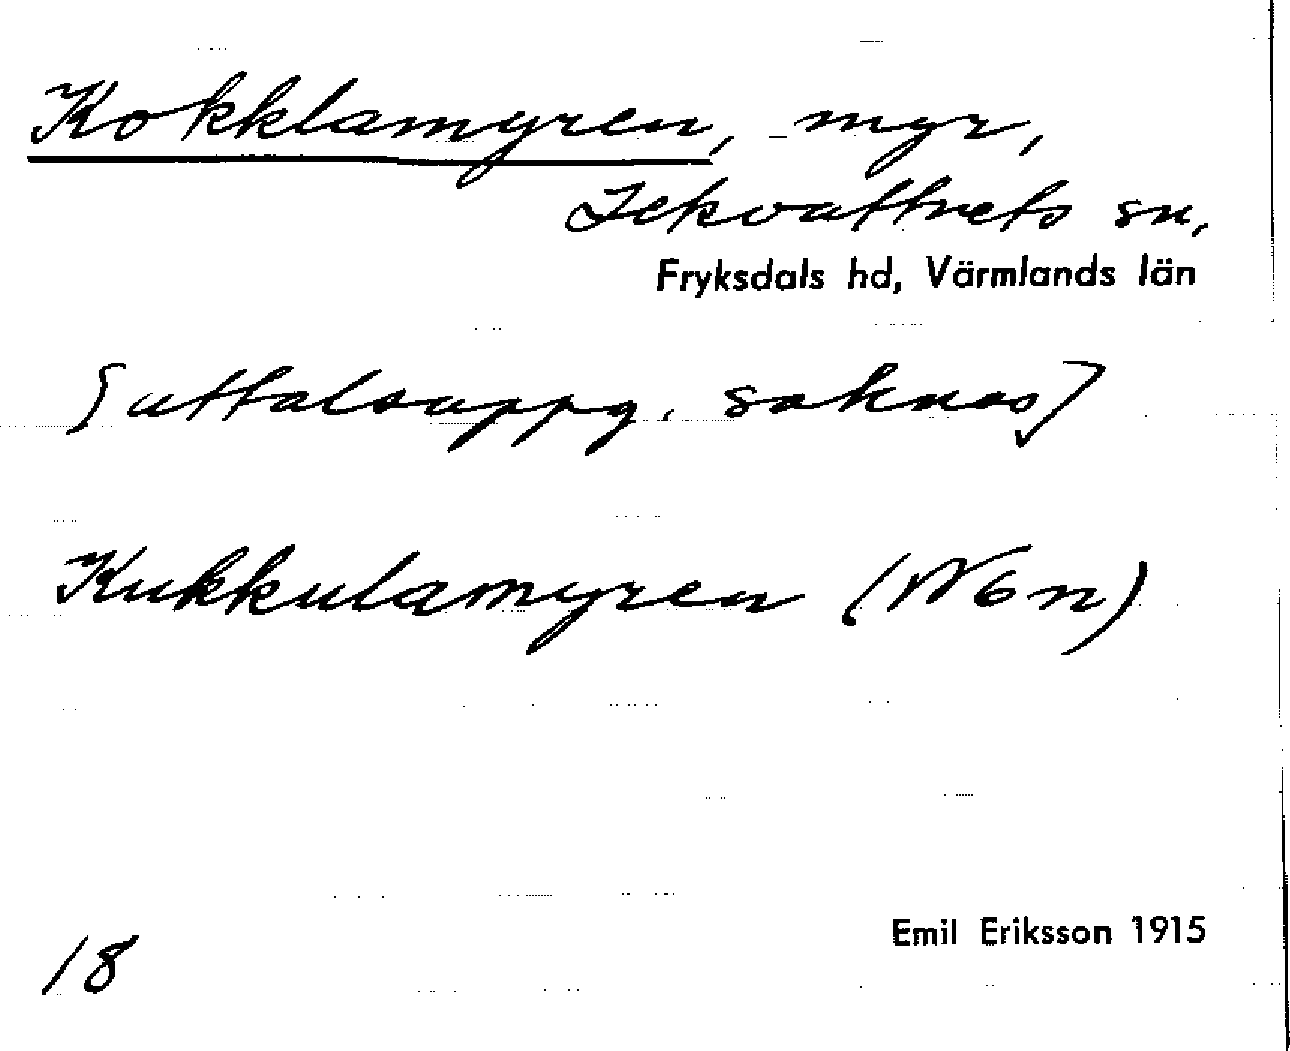 Kokklamyren, myr,
Lekvattnets sn,
Fryksdals hd, Värmlands län
[uttalsuppg. saknas]
Kukkulamyren (Wgn)
Emil Eriksson 1915
18